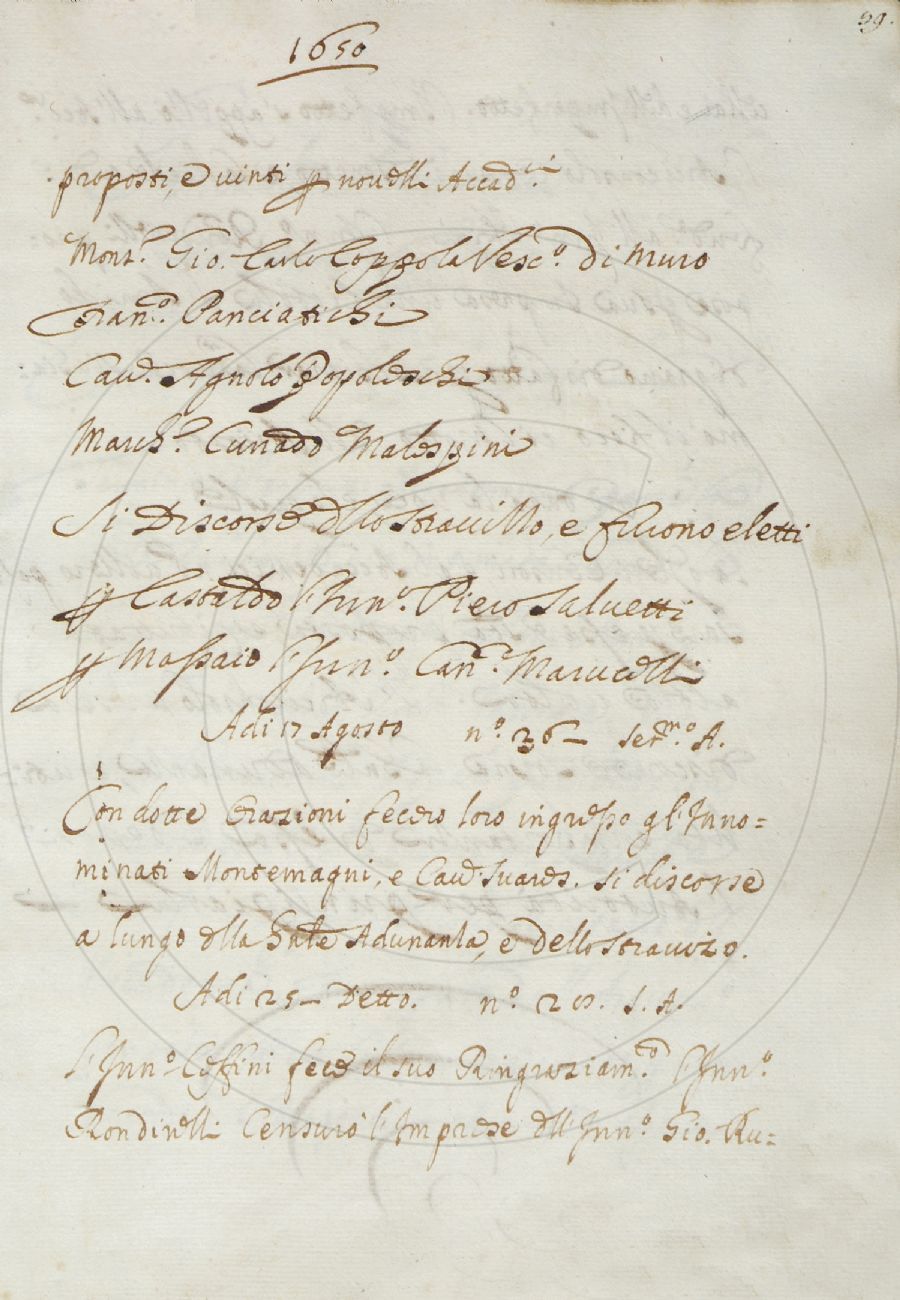 39.
1650
proposti, e vinti p novelli Accad.ci
Mons.r Gio. Carlo Coppola Vesc.o di Muro
Fran.co Panciatichi
Cav.e Agnolo Popoleschi
March.e Currado Malespini
Si Discorse dello Stravizzo, e furono eletti
p Castaldo l'Inn.o Piero Salvetti
p Massaio l'Inn.o Can.co Marucelli
Adi 17 Agosto n.o 36 Ser.mo A.
Con dotte Orazioni fecero loro ingresso gl'Inno=
minati Montemagni, e Cav.e Suares. si discorse
a lungo della Adunanza, e dello stravizo.
Adi 25 Detto. n.o S. A.
l'Inn.o Coffini fece il suo Ringraziam.to l'Inn.o
Rondinelli Censurò l'Imprese dell'Inn.o Gio. Ru=